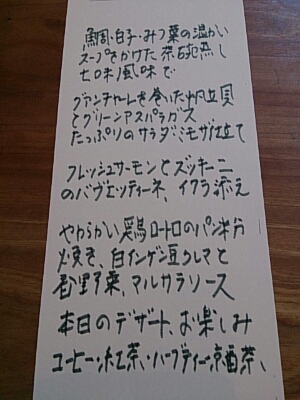 鯛・白子・みつ葉の温かい
スープをかけた茶碗蒸し
七味風味で
グアンチャーレを巻いた帆立貝
とグリーンアスパラガス
たっぷりのサラダミモザ仕立て
フレッシュサーモンとズッキーニ
のバヴェッティーネ、イクラ添え
やわらかい鶏ロトロのパン粉
焼き、白インゲン豆トマトと
春野菜、マルサラソース
本日のデザート、お楽しみ
コーヒー・紅茶・ハーブティー・